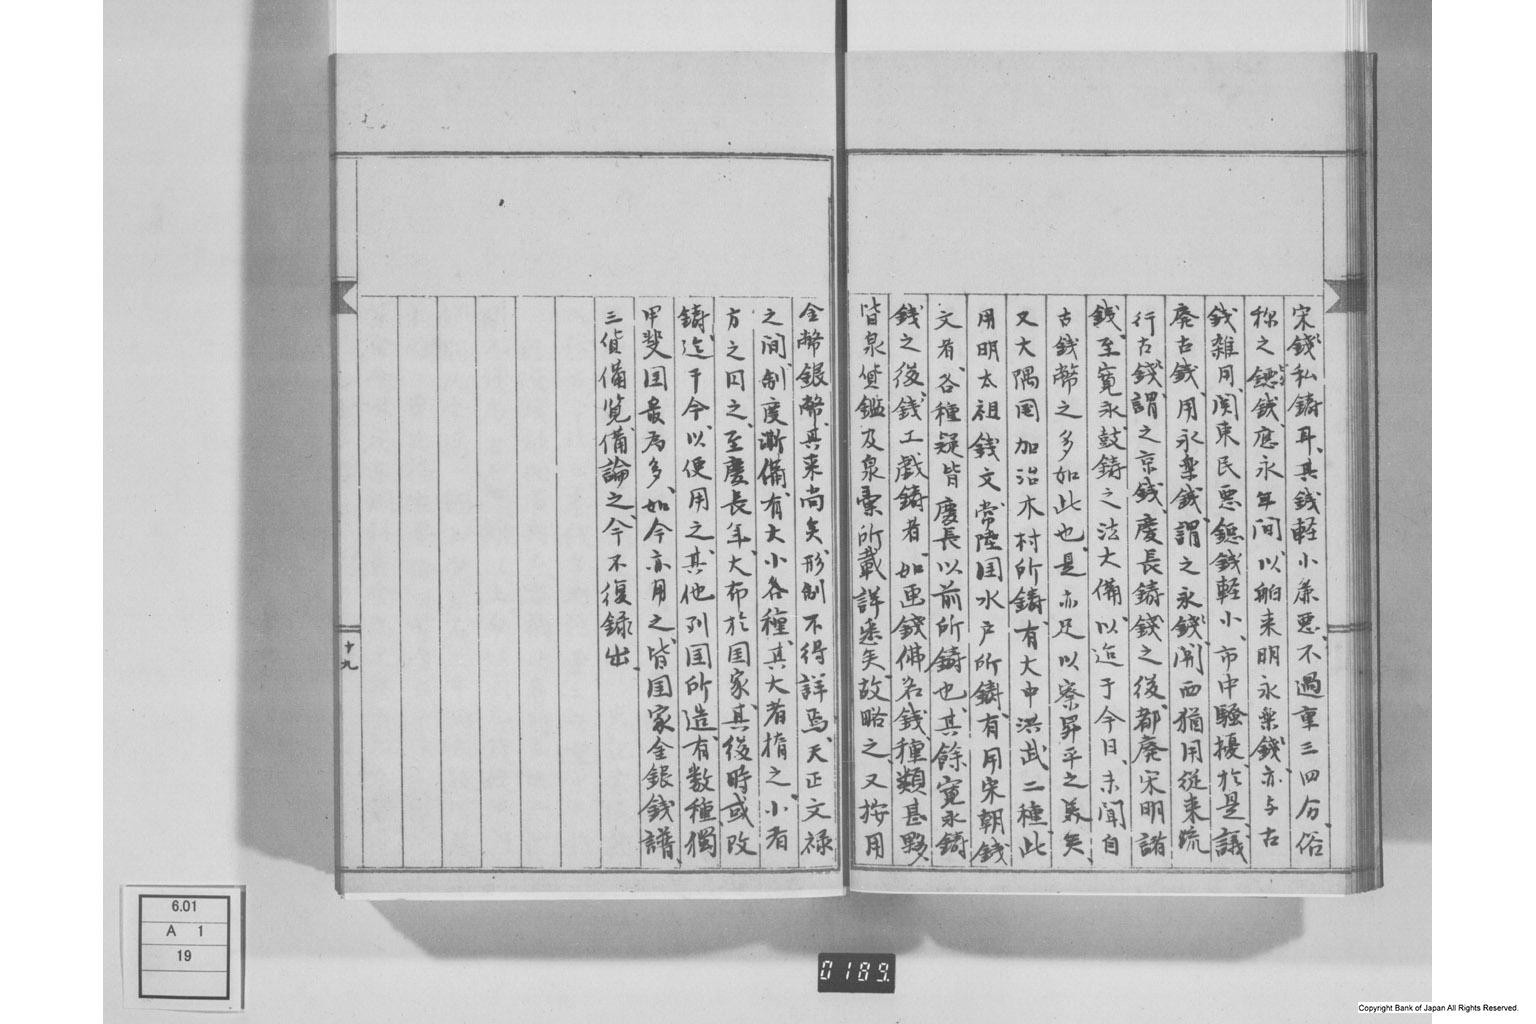 宋銭私鋳耳、其銭軽小薄悪、不過重三四分、俗
称之鐚銭、応永年間、以舶来明永楽銭、亦与古
銭雑用、関東民悪鐚銭軽小、市中騒擾、於是、議
廃古銭、用永楽銭、謂之永銭、関西猶用従来流
行古銭、謂之京銭、慶長鋳銭之後、都廃宋明諸
銭、至寛永鼓鋳之法大備、以迄于今日、未聞自
古銭幣之多如此也、是亦足以察昇平之美矣、
又大隅国加治木村所鋳、有大中洪武二種、此
用明太祖銭文、常陸国水戸所鋳、有用宋朝銭
文者、各種疑皆慶長以前所鋳也、其餘寛永鋳
銭之後、銭工戯鋳者、如画銭佛名銭、種類甚夥、
皆泉貨鑑及泉彙所載詳悉矣、故略之、又按用
金幣銀幣、其来尚矣、形制不得詳焉、天正文禄
之間、制度漸備、有大小各種、其大者楕之、小者
方之円之、至慶長年、大布於国家、其後時或改
鋳、迄于今、以便用之、其他列国所造、有数種、獨
甲斐国最為多、如今亦用之、皆国家金銀銭譜、
三貨備覧、備論之、今不復録出、
十九
6.01
A 1
19
0189.
Copyright Bank of Japan All Rights Reserved.